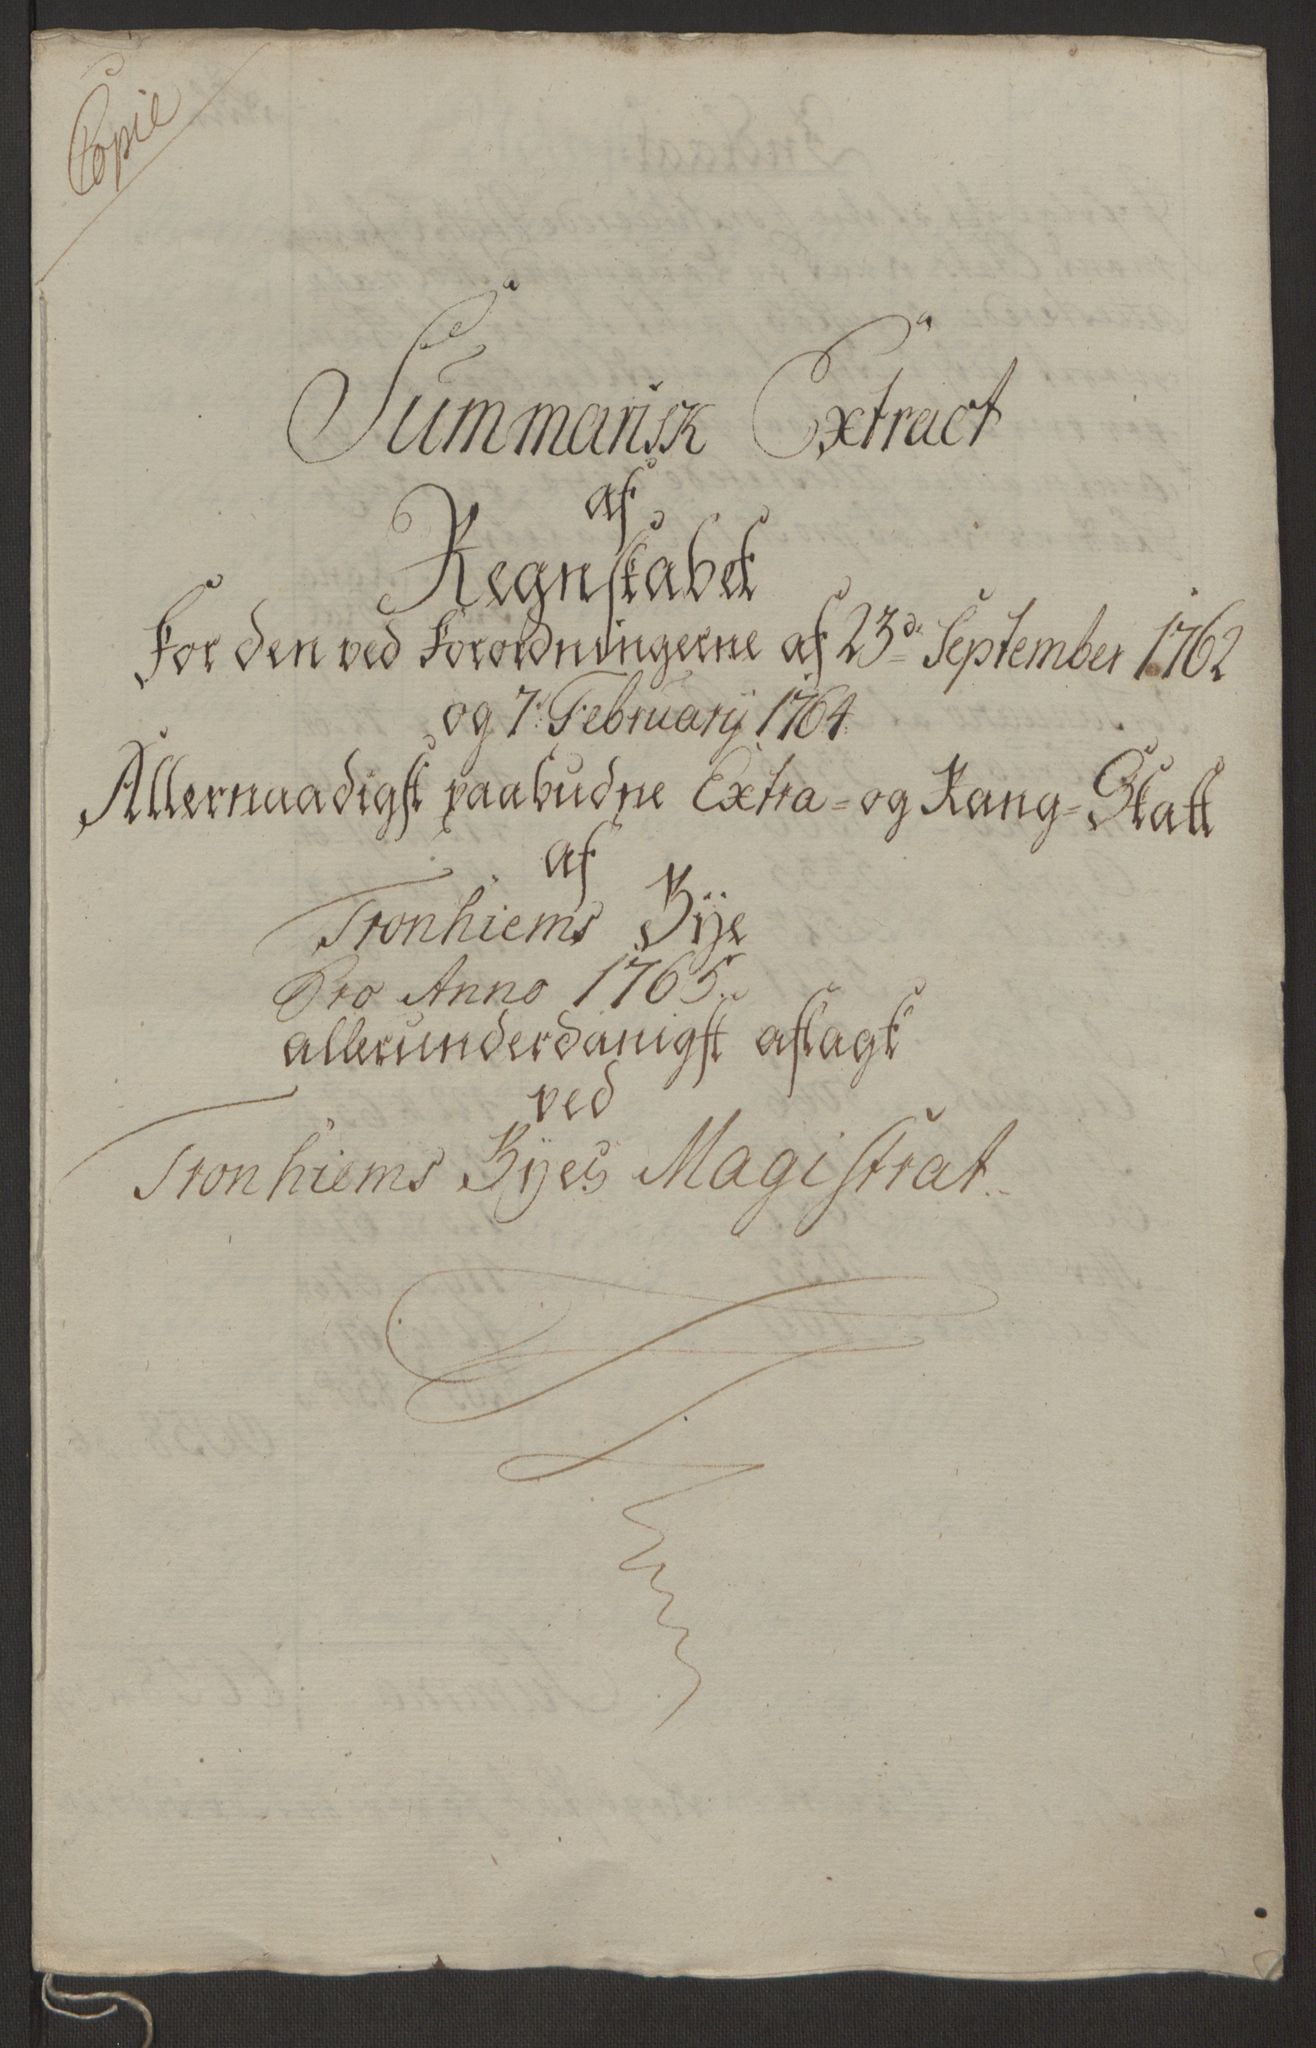 Copie
Summarisk Extract
af
Regnskabet
For den ved Forordningerne af 23de September 1762
og 7e February 1764
Allernaadigst paabudne Extra- og Rang-Skatt
af
Tronhiems Bÿe
Pro Anno 1765
allerunderdanigst aflagt
ved
Tronhiems Bÿes Magistrat